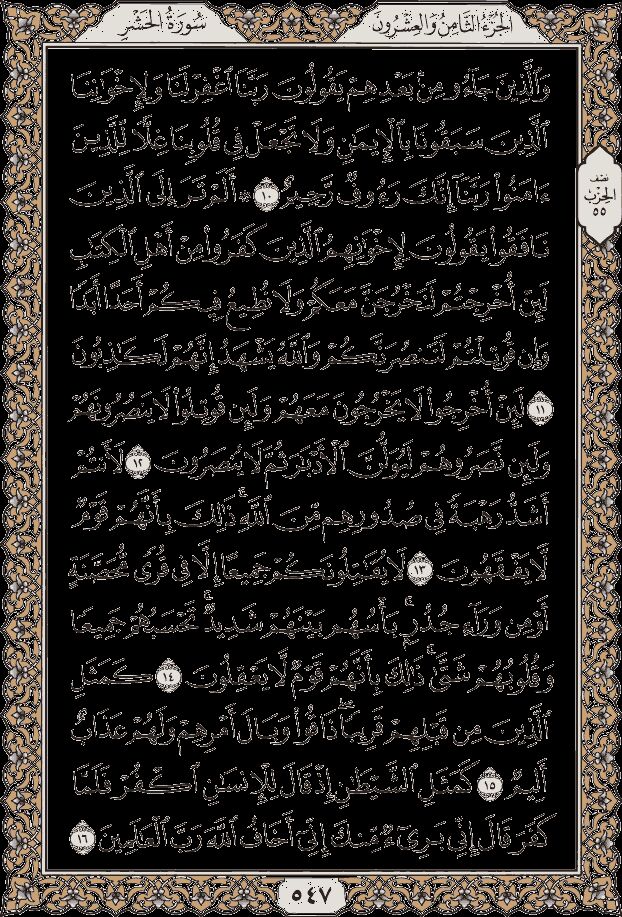 الجزء الثامن والعشرون
سورة الحشر
وَالَّذِينَ جَاءُو مِنْ بَعْدِهِمْ يَقُولُونَ رَبَّنَا اغْفِرْ لَنَا وَلِإِخْوَانِنَا
الَّذِينَ سَبَقُونَا بِالْإِيمَانِ وَلَا تَجْعَلْ فِي قُلُوبِنَا غِلًّا لِلَّذِينَ
ءَامَنُوا رَبَّنَا إِنَّكَ رَءُوفٌ رَحِيمٌ ١٠ ۞ أَلَمْ تَرَ إِلَى الَّذِينَ
نصف
الحزب
٥٥
نَافَقُوا يَقُولُونَ لِإِخْوَانِهِمُ الَّذِينَ كَفَرُوا مِنْ أَهْلِ الْكِتَابِ
لَئِنْ أُخْرِجْتُمْ لَنَخْرُجَنَّ مَعَكُمْ وَلَا نُطِيعُ فِيكُمْ أَحَدًا أَبَدًا
وَإِنْ قُوتِلْتُمْ لَنَنْصُرَنَّكُمْ وَاللَّهُ يَشْهَدُ إِنَّهُمْ لَكَاذِبُونَ
١١ لَئِنْ أُخْرِجُوا لَا يَخْرُجُونَ مَعَهُمْ وَلَئِنْ قُوتِلُوا لَا يَنْصُرُونَهُمْ
وَلَئِنْ نَصَرُوهُمْ لَيُوَلُّنَّ الْأَدْبَارَ ثُمَّ لَا يُنْصَرُونَ ١٢ لَأَنْتُمْ
أَشَدُّ رَهْبَةً فِي صُدُورِهِمْ مِنَ اللَّهِ ۚ ذَٰلِكَ بِأَنَّهُمْ قَوْمٌ
لَا يَفْقَهُونَ ١٣ لَا يُقَاتِلُونَكُمْ جَمِيعًا إِلَّا فِي قُرًى مُحَصَّنَةٍ
أَوْ مِنْ وَرَاءِ جُدُرٍ ۚ بَأْسُهُمْ بَيْنَهُمْ شَدِيدٌ ۚ تَحْسَبُهُمْ جَمِيعًا
وَقُلُوبُهُمْ شَتَّىٰ ۚ ذَٰلِكَ بِأَنَّهُمْ قَوْمٌ لَا يَعْقِلُونَ ١٤ كَمَثَلِ
الَّذِينَ مِنْ قَبْلِهِمْ قَرِيبًا ۖ ذَاقُوا وَبَالَ أَمْرِهِمْ وَلَهُمْ عَذَابٌ
أَلِيمٌ ١٥ كَمَثَلِ الشَّيْطَانِ إِذْ قَالَ لِلْإِنْسَانِ اكْفُرْ فَلَمَّا
كَفَرَ قَالَ إِنِّي بَرِيءٌ مِنْكَ إِنِّي أَخَافُ اللَّهَ رَبَّ الْعَالَمِينَ ١٦
٥٤٧